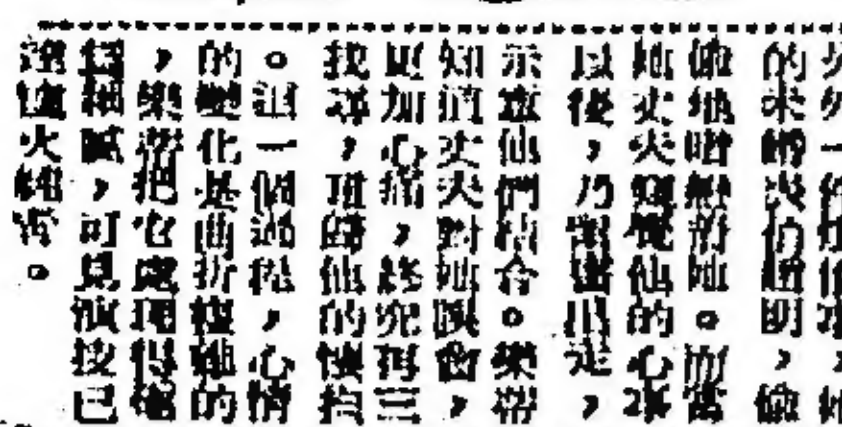 的未婚夫伯明,偷
偷地暗戀着她。而當
她丈夫窺覺他的心事
以後,乃留書出走,
示意他們結合。樂蒂
知道丈夫對她誤會,
更加心痛,終究再三
找尋,重歸他的懷抱
。這一個過程,心情
的變化是曲折複雜的
,樂蒂把它處理得極
細膩,可見演技已
達爐火純青。